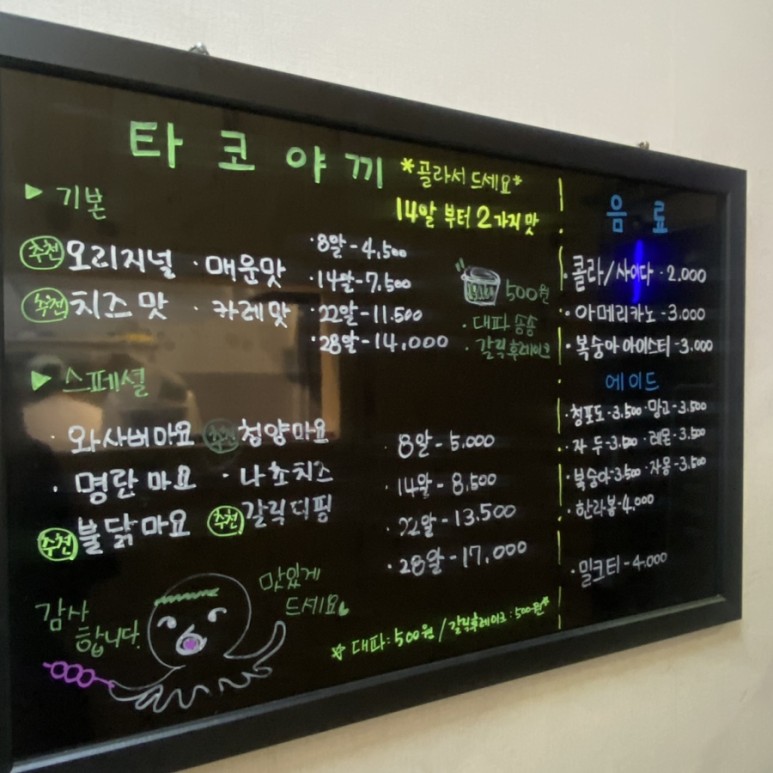 타코야끼 *골라서 드세요*
14알 부터 2가지 맛
▶ 기본
추천 오리지널 · 매운맛
추천 치즈맛 · 카레맛
· 8알 - 4,500
· 14알 - 7,500
· 22알 - 11.500
· 28알 - 14,000
500원
· 대파 송송
· 갈릭후레이크
▶ 스페셜
· 와사비마요 추천 청양마요
· 명란마요 · 나쵸치즈
추천 불닭마요 추천 갈릭디핑
· 8알 - 5,000
· 14알 - 8,500
· 22알 - 13.500
· 28알 - 17,000
감사
합니다.
맛있게
드세요
☆ 대파 : 500원 / 갈릭후레이크 : 500원*
음료
· 콜라/사이다 · 2.000
· 아메리카노 - 3.000
· 복숭아 아이스티 - 3.000
에이드
· 청포도 - 3.500 · 망고 - 3.500
· 자두 - 3.500 · 레몬 - 3.500
· 복숭아 - 3.500 · 자몽 - 3.500
· 한라봉 - 4.000
· 밀크티 - 4.000